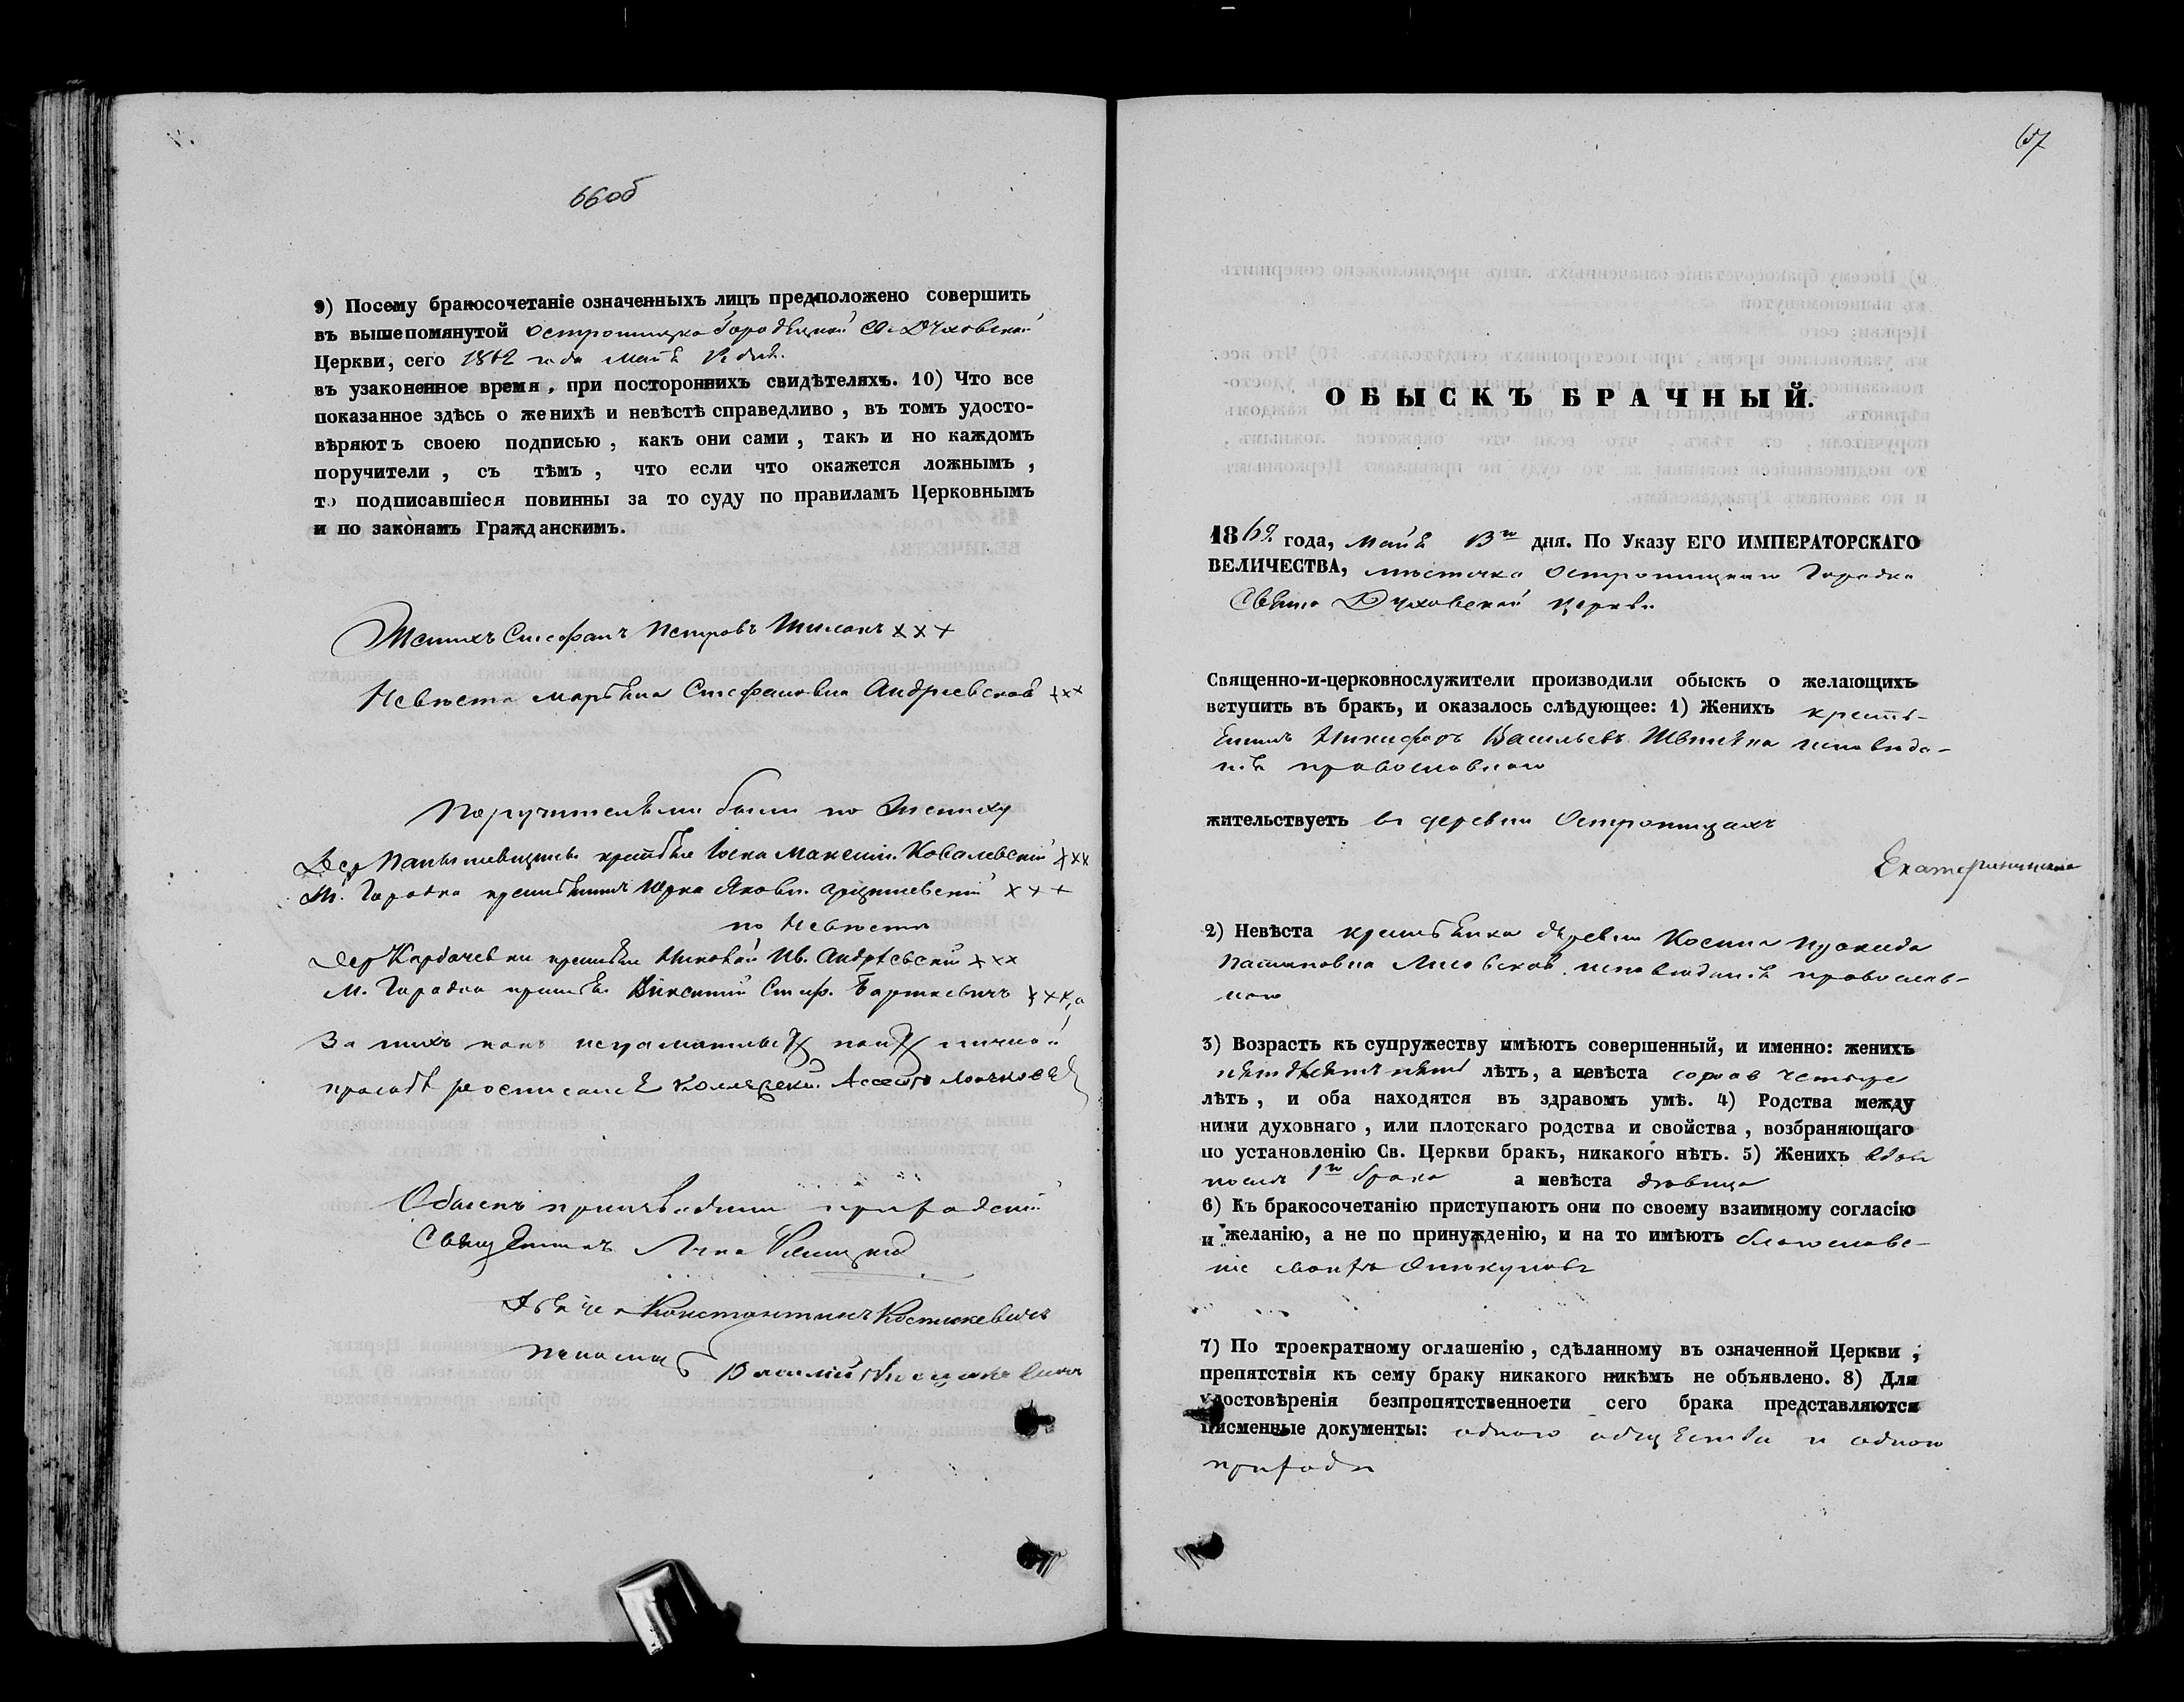 66об
9) Посему бракосочетаніе означенныхъ лицъ предположено совершить
въ вышепомянутой Острошицко Городецкой Св. Духовской
Церкви, сего 1862 года Маія дня.
въ узаконенное время, при постороннихъ свидѣтеляхъ. 10) Что все
показанное здѣсь о женихѣ и невѣстѣ справедливо, въ томъ удосто-
вѣряютъ своею подписью, какъ они сами, такъ и по каждомъ
поручители, съ тѣмъ, что если что окажется ложнымъ,
то подписавшіеся повинны за то суду по правиламъ Церковнымъ
и по законамъ Гражданскимъ.
Женихъ Стефанъ Петровъ ×××
Невѣста Марьяна Стефановна Андреевская ×××
Поручителями были по Жениху
Дер. Іоска Максим. Ковалевскій ×××
М. Городка Юрка Яковл. ×××
по Невѣсте
Дер Карбачевки Николай Ив. Андреевскій ×××
М. Городка Викентій Стеф. Барткевичъ ×××, а
За нихъ какъ неграмотныхъ по ихъ личной
прозьбѣ росписался Коллежскій Ассесоръ
Обыскъ производили приходскій
Священникъ Лука
Дьячекъ Константинъ Костюкевичъ
Пономарь Василій
67
ОБЫСКЪ БРАЧНЫЙ.
1862 года, Маія 13го дня. По Указу ЕГО ИМПЕРАТОРСКАГО
ВЕЛИЧЕСТВА, мѣстечка Острошицкаго Городка
Свято Духовской церкви
Священно-и-церковнослужители производили обыскъ о желающихъ
вступить въ бракъ, и оказалось слѣдующее: 1) Женихъ кресть-
янинъ Никифоръ Васильевъ исповѣда-
нія православнаго
жительствуетъ въ деревни Острошицахъ
2) Невѣста крестьянка деревни
Лисовская исповѣданія православ-
наго
3) Возрастъ къ супружеству имѣютъ совершенный, и именно: женихъ
пятдѣсятъ пять лѣтъ, а невѣста сорокъ четыре
лѣтъ, и оба находятся въ здравомъ умѣ. 4) Родства между
ними духовнаго, или плотскаго родства и свойства, возбраняющаго
по установленію Св. Церкви бракъ, никакого нѣтъ. 5) Женихъ вдов
послѣ 1го брака а невѣста дѣвица
6) Къ бракосочетанію приступаютъ они по своему взаимному согласію
и желанію, а не по принужденію, и на то имѣютъ благослове-
ніе своихъ опекуновъ
7) По троекратному оглашенію, сдѣланному въ означенной Церкви,
препятствія къ сему браку никакого никѣмъ не объявлено. 8) Для
удостовѣренія безпрепятственности сего брака представляются
писменные документы: одного общества и одного
прихода